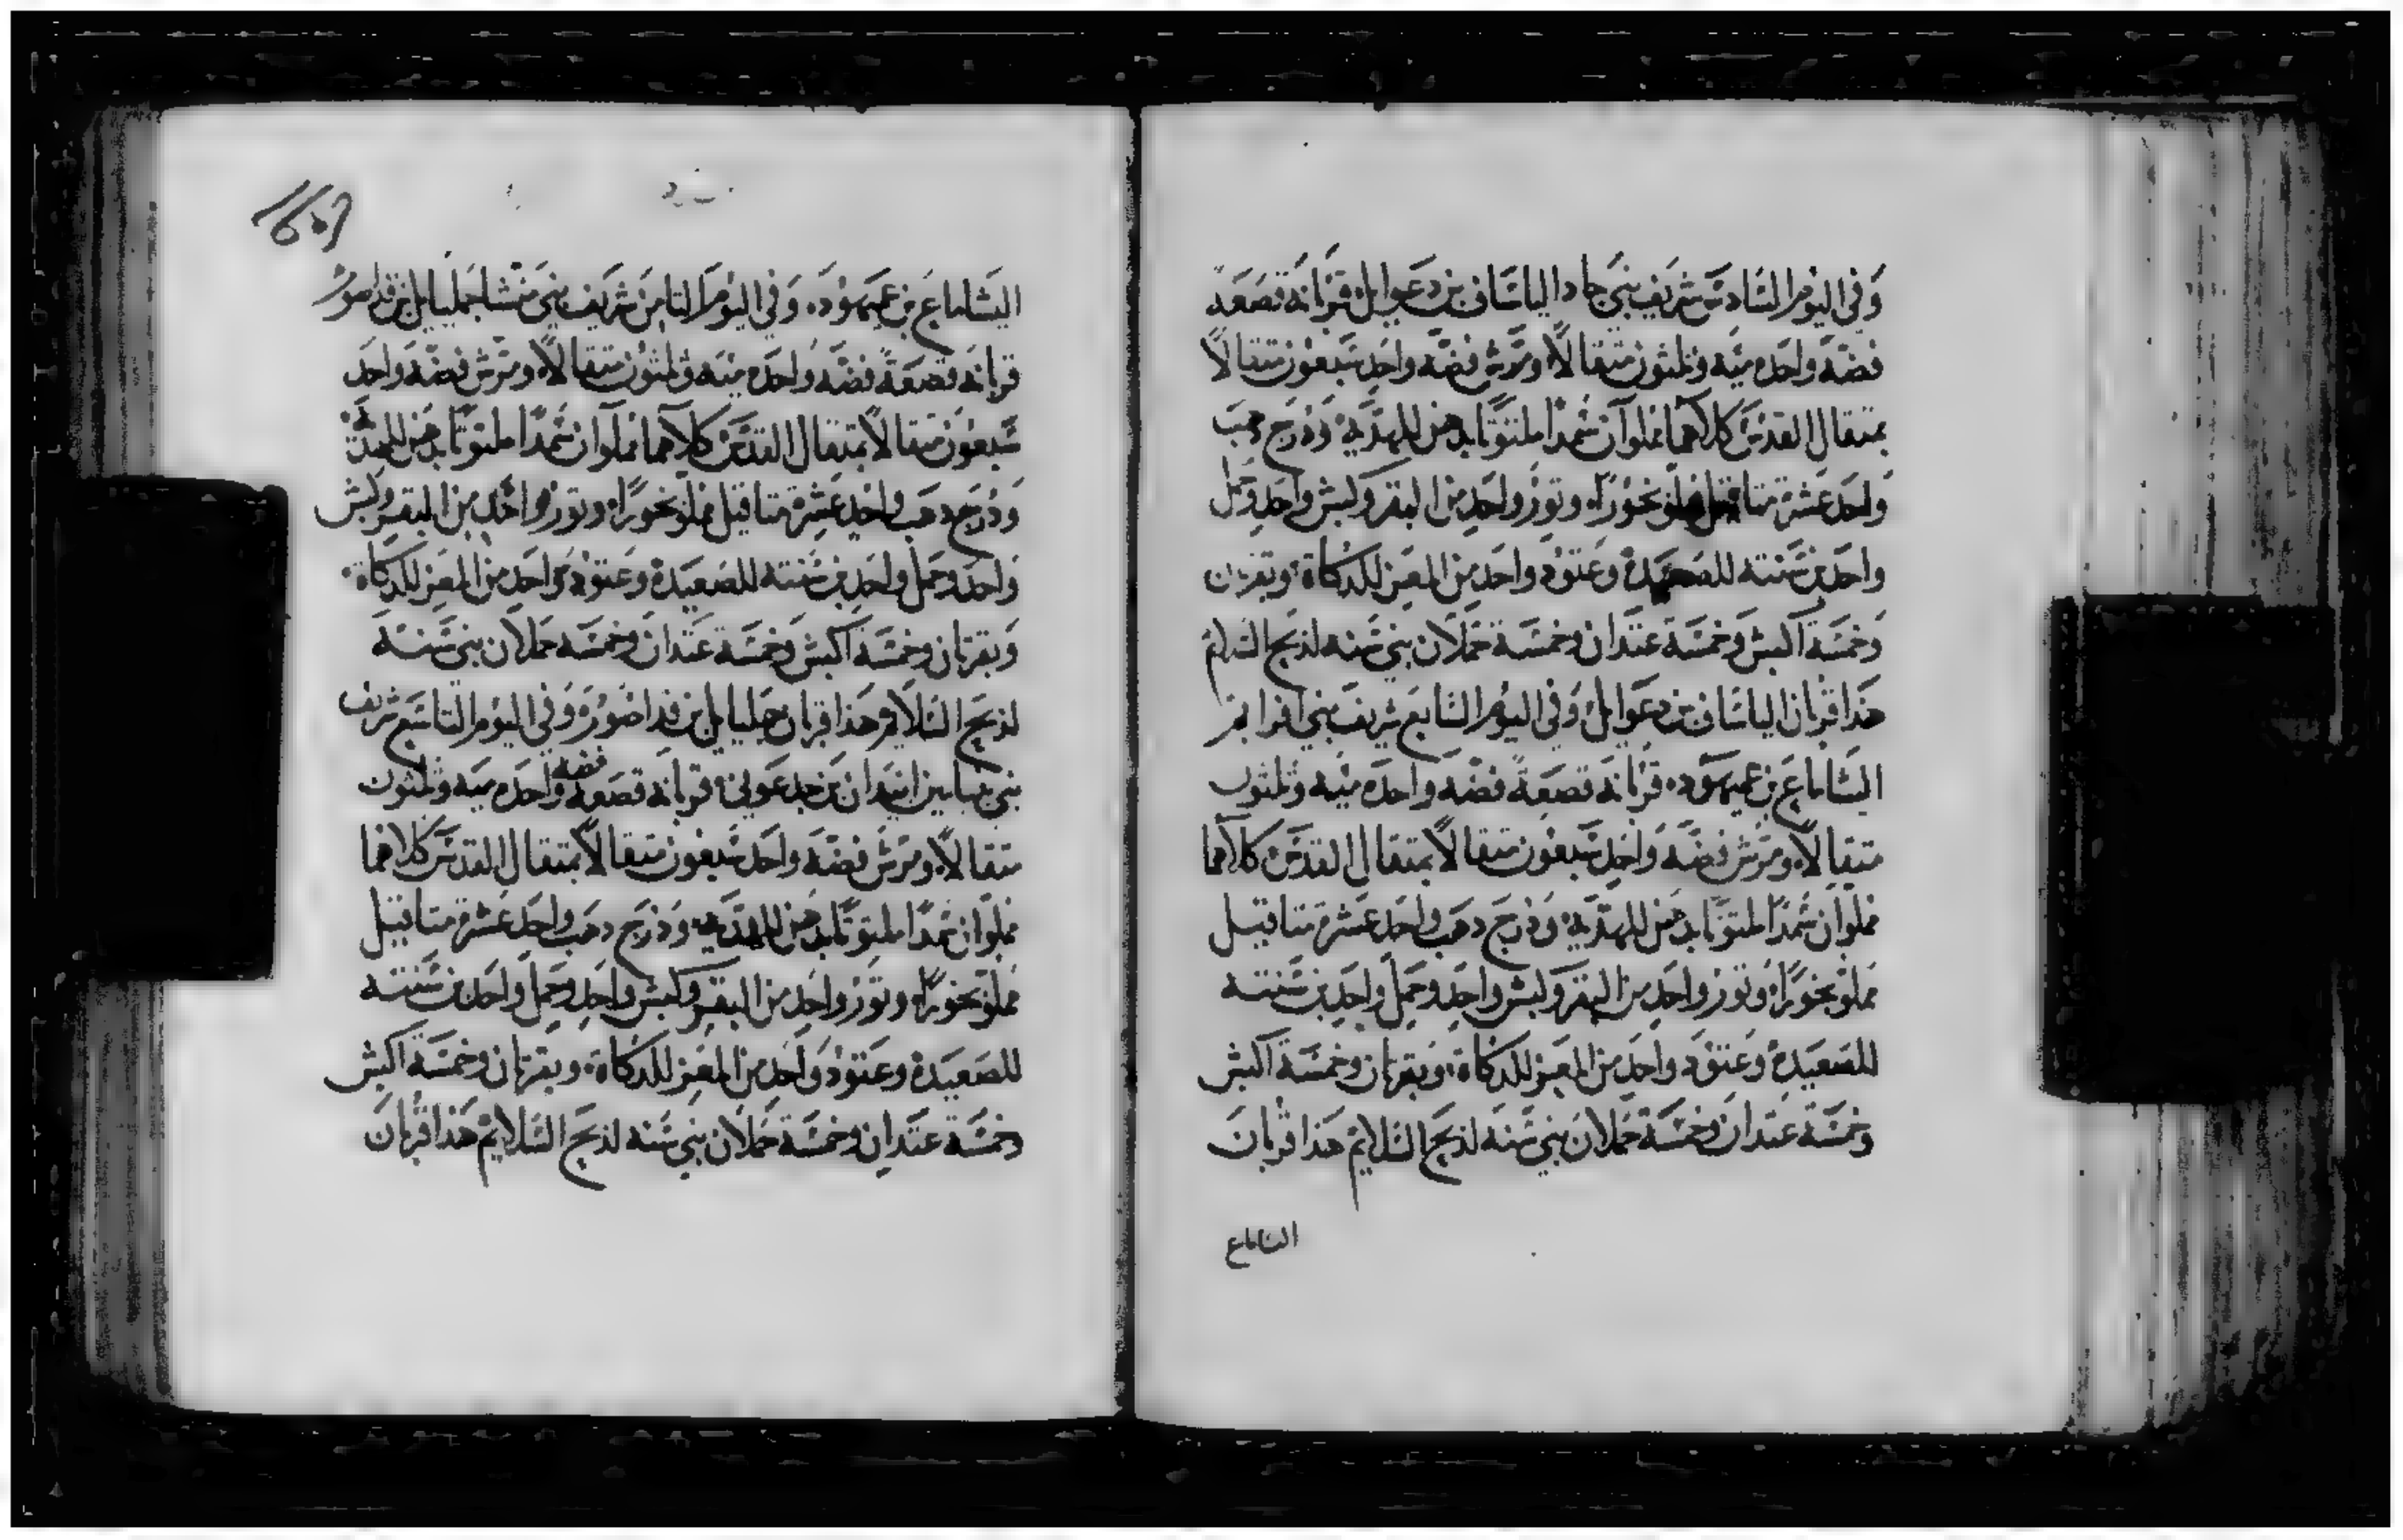 وَفي اليَوْم السَّادسَ شريف بَني جاد الياسَاف بن دعَوايل قربَانَه قصَعَة
فضَّة وَاحدَه ميَّه وثلثون مثقالاً ومرَش فضَّه واحدِ سَبعَوْن مثقالاً
بمثقال القدسَ كلاهمَا مملوآن سَمْدًا ملتوتًا بدهن للهدّيَة وَدُرج دهَب
وَاحدَ عَشرة مثاقيل مملو بخوْرًا وثوْر واحدِ من البقر وكبش واحدِ وحَمل
واحدَ بن سَنته للصَعيْدة وعَتوْد واحدَ من المعَز للدكاة وبقرتان
وَخمسَة اكبش وَخمسَة عتدَان وخمسَة حملَان بني سَنه لذبَح السَلايم
هَذا قربان الياسَاف بن دعَوايل وَفي اليَوْم السَابع شريفَ بني افرايم
اليشاماع بن عميهوَد قربَانه قصَعَةً فضَّه واحدَه ميَّه وثلثون
مثقالاً ومرَش فضَّة وَاحدِ سَبعَوْن مثقالاً بمثقال القدسَ كلاهما
مملوآن سَمْدًا ملتوتًا بدهَن للهدّيَة وَدُرج دهَب واحدَ عَشرة مثاقيل
مملوّ بخورًا وثور واحدِ من البقر وكبش واحدِ وحمَل واحدِ بن سَنته
للصَعيَدة وعَتوَد واحدِ من المعَز للدكاة وَبقرتان وخمسَة اكبش
وخمسَة عتدان وخمسَة حَملان بني سَنَه لذبَح السَلايم هَذا قربانَ
اليشاماع
اليشاماع بن عميهوْد وَفي اليوْم الثامن شريف بني منشا جمليايل بن فداصور
قربانه قصعَةً فضَّه وَاحدَه ميَّه وثلثون مثقالاً ومرَش فضَّة واحدَ
سَبعوَن مثقالاً بمثقال القدسَ كلاهما مملوآن سَمدًا ملتوتًا بدهن للهدّيَة
وَدُرج دهَب واحدِ عَشرة مثاقيل مملوّ بخورًا وثور واحد من البقر وكبش
وَاحدَ وحمَل واحدِ بن سَنته للصَعيَدة وعَتود وَاحدِ من المعز للدكاة
وَبقرتان وخمسَة اكبش وَخمسَة عَتدانَ وخمسَه حملان بني سَنة
لذبَح السَلايم هَذا قربان جمليايل بن فداصُور وَفي اليوم التاسَع شريف
بني بنيامين ابيَدان بن جدعَوني قربانه قصَعَة فضه وَاحدَه ميَه وثلثون
مثقالاً ومرَش فضَّة واحَد سَبعون مثقالاً بمثقال القدسَ كلاهما
مملوّان سَمدًا ملتوتًا بدهَن للهدّيَة وَدُرج دهَب واحَد عَشرة مثاقيل
مملوّ بخورًا وثَور واحدِ من البقر وكبش واحدِ وحمَل واحدِ بن سَنته
للصَعيَدة وعَتوْد وَاحَد من المعَز للدكاة وبقرتان وخمسَة اكبش
وخمسَة عتَدان وخمسَة حَملان بني سَنه لذبح السَلايم هَذا قربانَ